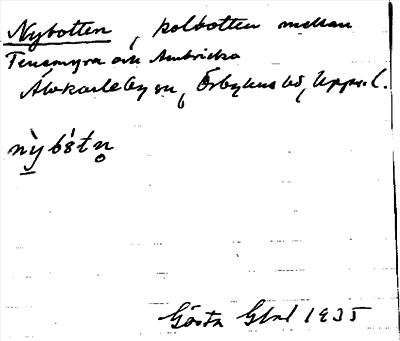 Nybotten, kolbotten mellan
Tensmyra och Ambricka
Älvkarleby sn, Örbyhus hd, Upps. l.
nỳbót n̥
Gösta 1935